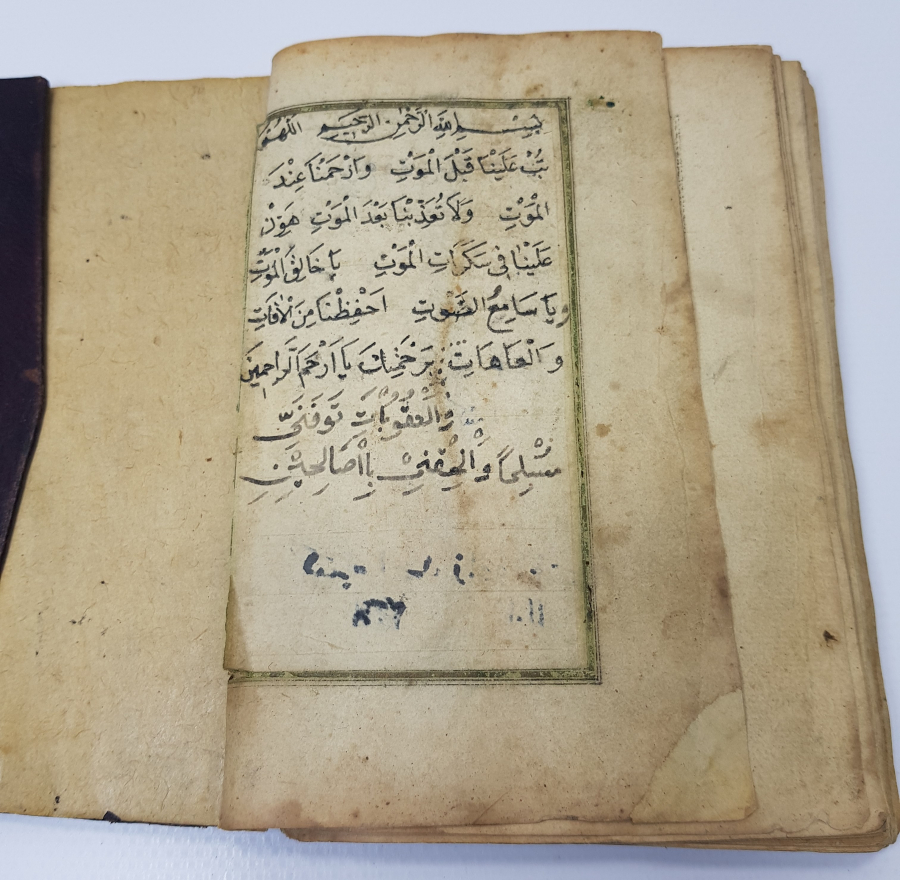 بِسْــمِ اللّٰهِ الرَّحْمٰنِ الرَّحِيمِ اللّٰهُمَّ
تُبْ عَلَيْنَا قَبْلَ الْمَوْتِ وَارْحَمْنَا عِنْدَ
الْمَوْتِ وَلَا تُعَذِّبْنَا بَعْدَ الْمَوْتِ هَوِّنْ
عَلَيْنَا فِى سَكَرَاتِ الْمَوْتِ يَا خَالِقَ الْمَوْتِ
وَيَا سَامِعَ الصَّوْتِ اَحْفِظْنَا مِنَ الْاٰفَاتِ
وَالْعَاهَاتِ بِرَحْمَتِكَ يَا اَرْحَمَ الرَّاحِمِينَ
وَالْعُقُوبَاتِ تَوَفَّنَىِ
مُسْلِماً وَاَلْحِقْنِىِ بِالْصَّالِحِينَ